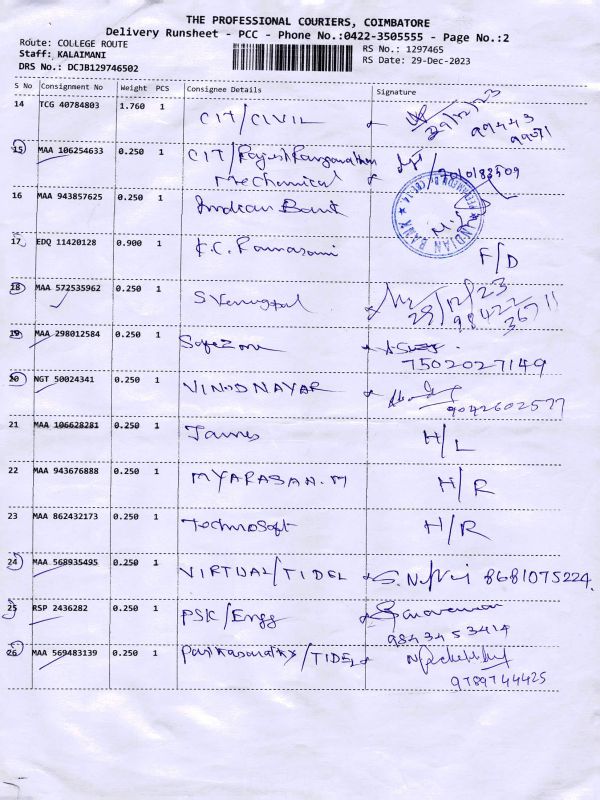 THE PROFESSIONAL COURIERS, COIMBATORE
Delivery Runsheet - PCC - Phone No.:0422-3505555 - Page No.:2
Route: COLLEGE ROUTE
Staff: KALAIMANI
DRS No.: DCJB129746502
RS No.: 1297465
RS Date: 29-Dec-2023
S No Consignment No Weight PCS Consignee Details Signature
14 TCG 40784803 1.760 1 CIT/CIVIL 29/12/23
99443
99071
15 MAA 106254633 0.250 1 CIT/Rajesh Ranganathan
Mechanical
16 MAA 943857625 0.250 1 Indian Bank
INDIAN BANK
17 EDQ 11420128 0.900 1 K.C. Ramasami F/D
18 MAA 572535962 0.250 1 S Venugpal 29/12/23
98422
36711
19 MAA 298012584 0.250 1 SafeZone
7502027149
20 NGT 50024341 0.250 1 VINOD NAYAR
9042602577
21 MAA 106628281 0.250 1 James H/L
22 MAA 943676888 0.250 1 MYARASAN.M H/R
23 MAA 862432173 0.250 1 TechnoSoft H/R
24 MAA 568935495 0.250 1 VIRTUAL/TIDEL 8681075224.
25 RSP 2436282 0.250 1 PSK/Engg Saravanan
9843453414
26 MAA 569483139 0.250 1 Parthasarathy/TIDEL
9789744425